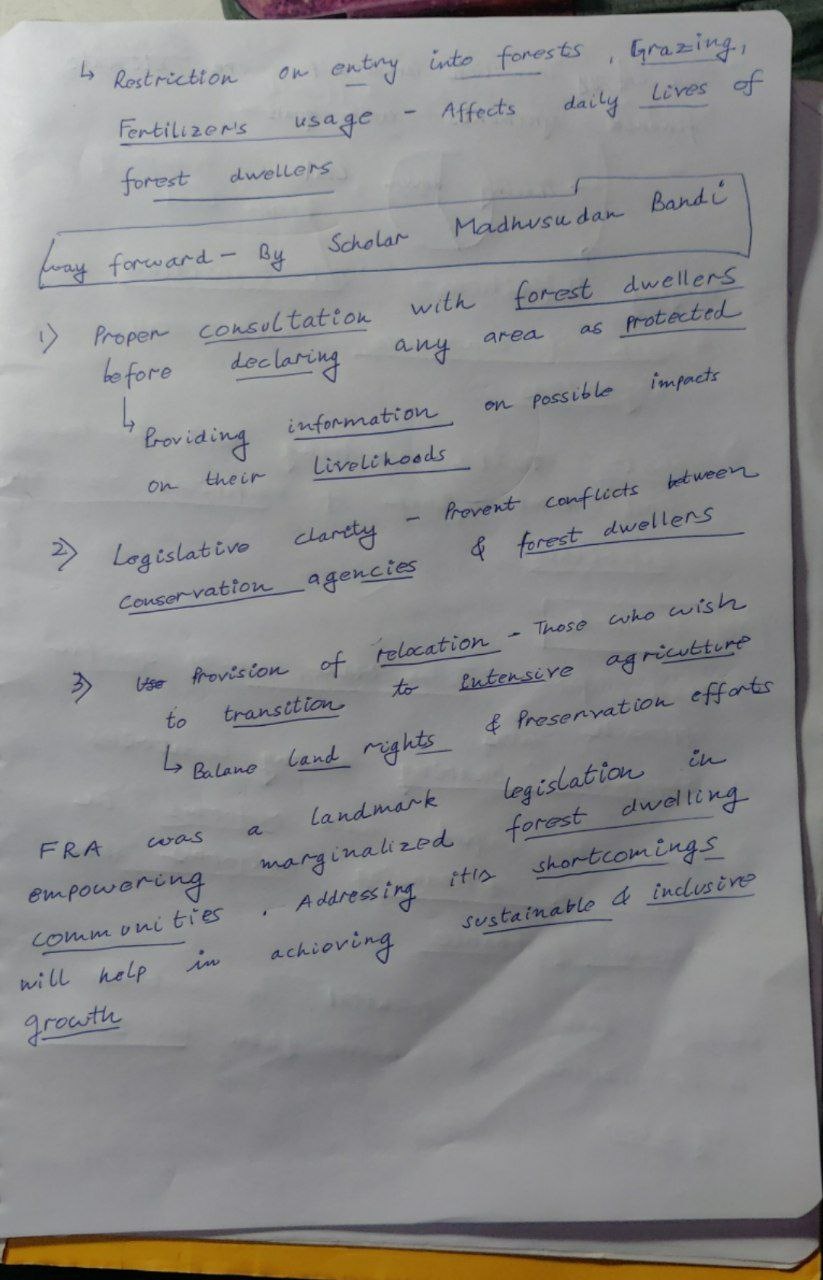 ↳ Restriction on entry into forests, Grazing,
Fertilizers usage – Affects daily lives of
forest dwellers
way forward – By Scholar Madhusudan Bandi
1) Proper consultation with forest dwellers
before declaring any area as protected
↳ Providing information on possible impacts
on their livelihoods
2) Legislative clarity – Prevent conflicts between
conservation agencies & forest dwellers
3) Use Provision of relocation – Those who wish
to transition to intensive agriculture
↳ Balane land rights & preservation efforts
FRA was a landmark legislation in
empowering marginalized forest dwelling
communities. Addressing it's shortcomings
will help in achieving sustainable & inclusive
growth